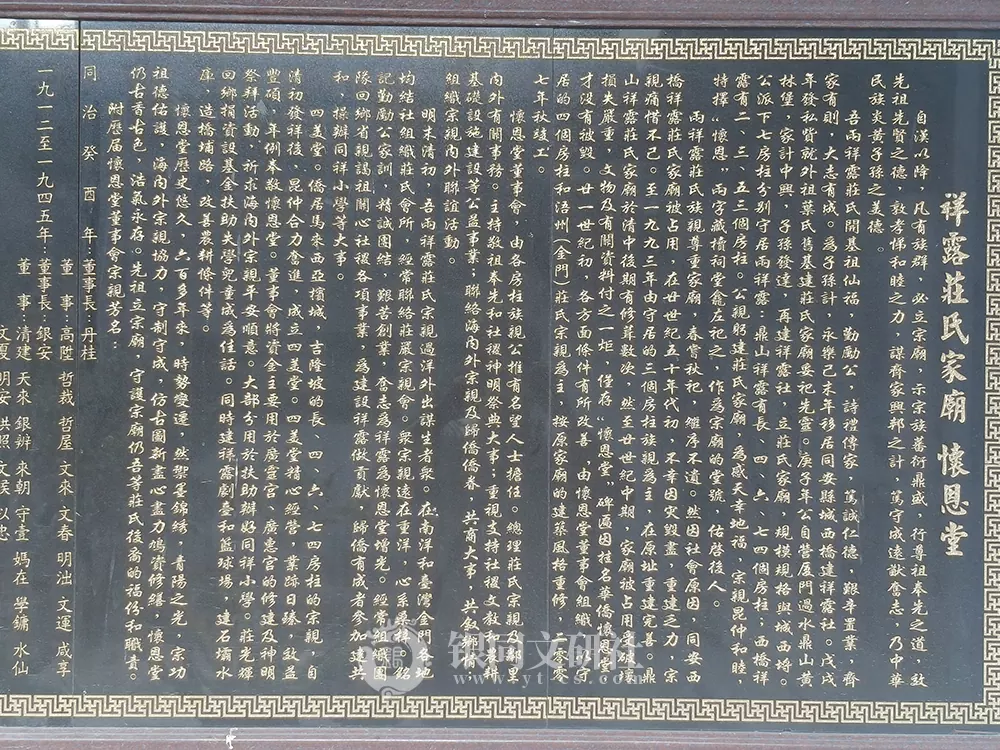 祥露莊氏家廟 懷恩堂
自漢以降，凡有族群，必立宗廟，示宗族蕃衍鼎盛，行尊祖奉先之道，敦
先祖先賢之德，敦孝悌和睦之力，謀齊家興邦之計，篤守成遠猷奮志，乃中華
民族炎黃子孫之美德。
吾兩祥露莊氏開基祖仙福，勤勵公，詩禮傳家，篤誠仁德，艱辛置業，齊
家有則，大志有成。為子孫計，永樂己未年移居同安縣城西橋建祥露社。戊戌
年發私貲就外祖葉氏舊基建莊氏家廟妥祀先靈。庚子年公自營厦門過水鼎山黃
林堡，家計中興，子孫發達，再建祥露社，立莊氏家廟，規模規格與城西埒。
公派下七房柱分别守居兩祥露：鼎山祥露有長、四、六、七四個房柱；西橋祥
露有二、三、五三個房柱。公親躬建莊氏家廟，為感天幸地福，宗親昆仲和睦，
特擇“懷恩”兩字藏樻祠堂龕左祀之，作為宗廟的堂號，佑啓後人。
兩祥露莊氏族親尊重家廟，春嘗秋祀，繼序不遺。然因社會原因，同安西
橋祥露莊氏家廟被占用，在廿世纪五十年代初，不幸因灾毁去，重建乏力，宗
親痛惜不已。至一九九三年由守居的三個房柱族親為主，在原址重建完善。鼎
山祥露莊氏家廟於清中後期有修葺數次，然至廿世纪中期，家廟被占用，破壞
損失嚴重，文物及有關資料付之一炬，僅存“懷恩堂”碑匾因挂名“華僑懷恩堂”
才没有被毁。廿一世紀初，各方面條件有所改善，由懷恩堂董事會組織，守
居的四個房柱和浯州（金門）莊氏宗親為主，按原家廟的建築風格重修，零零
七年秋竣工。
懷恩堂董事會，由各房柱族親公推有名望人士擔任。總理莊氏宗親及鄉里
内外有關事務。主持敬祖奉先和社禝神明祭典大事；重視支持社禝文教和農耕
基礎設施建設等公益事業；聯絡海内外宗親及歸僑僑眷，共商大事，共叙鄉情，
組織宗親内外聯誼活動。
明末清初，吾兩祥露莊氏宗親過洋外出謀生者衆。在南洋和臺灣金門各地
均結社組織莊氏會所，經常聯絡莊嚴宗親會。衆宗親遠在重洋，心系桑梓，銘
記勤勵公家訓，精誠團結，艱苦創業，奮志為祥露為懷恩堂增光。經常組織團
隊回鄉省親謁祖關心社禝各項事業，為建設祥露做貢獻，歸僑有成者參加建共
和，操辦同祥小學等大事。
四美堂。僑居馬來西亞檳城，吉隆坡的長、四、六、七四房柱的宗親，自
清初發祥後，昆仲合力奮進，成立四美堂。四美堂精心經營，業跡日臻，效益
豐碩，年例奉敬懷恩堂。董事會將資金主要用於廣靈宫、廣惠宫的修建及神明
祭拜活動，祈求海内外宗親平安順意。大部分用於扶助辦好同祥小學。莊光輝
回鄉捐資設基金扶助失學兒童成為佳話。同時建祥露劇臺和籃球場，建石壩水
庫，造橋埔路，改善農耕條件等。
懷恩堂歷史悠久，六百多年來，時勢變遷，然禦墨錦綉，青陽之光，宗功
祖德佑護，海内外宗親協力，守制守成，仿古圖新盡心盡力鳩資修繕，懷恩堂
仍古香古色，浩氣永存。先祖立宗廟，守護宗廟仍吾等莊氏後裔的福份和職責。
附歷届懷恩堂董事會宗親芳名：
同治癸酉年：董事長 丹桂
董 事 高陞 哲裁 哲屋 文來 文春 明泏 文運 咸享
一九一二至一九四五年：董事長 銀安
董 事：清建 天來 銀辦 來朝 守壹 媽在 學鏞 水仙
明安 洪照
银同文研社
www.ytcs.com